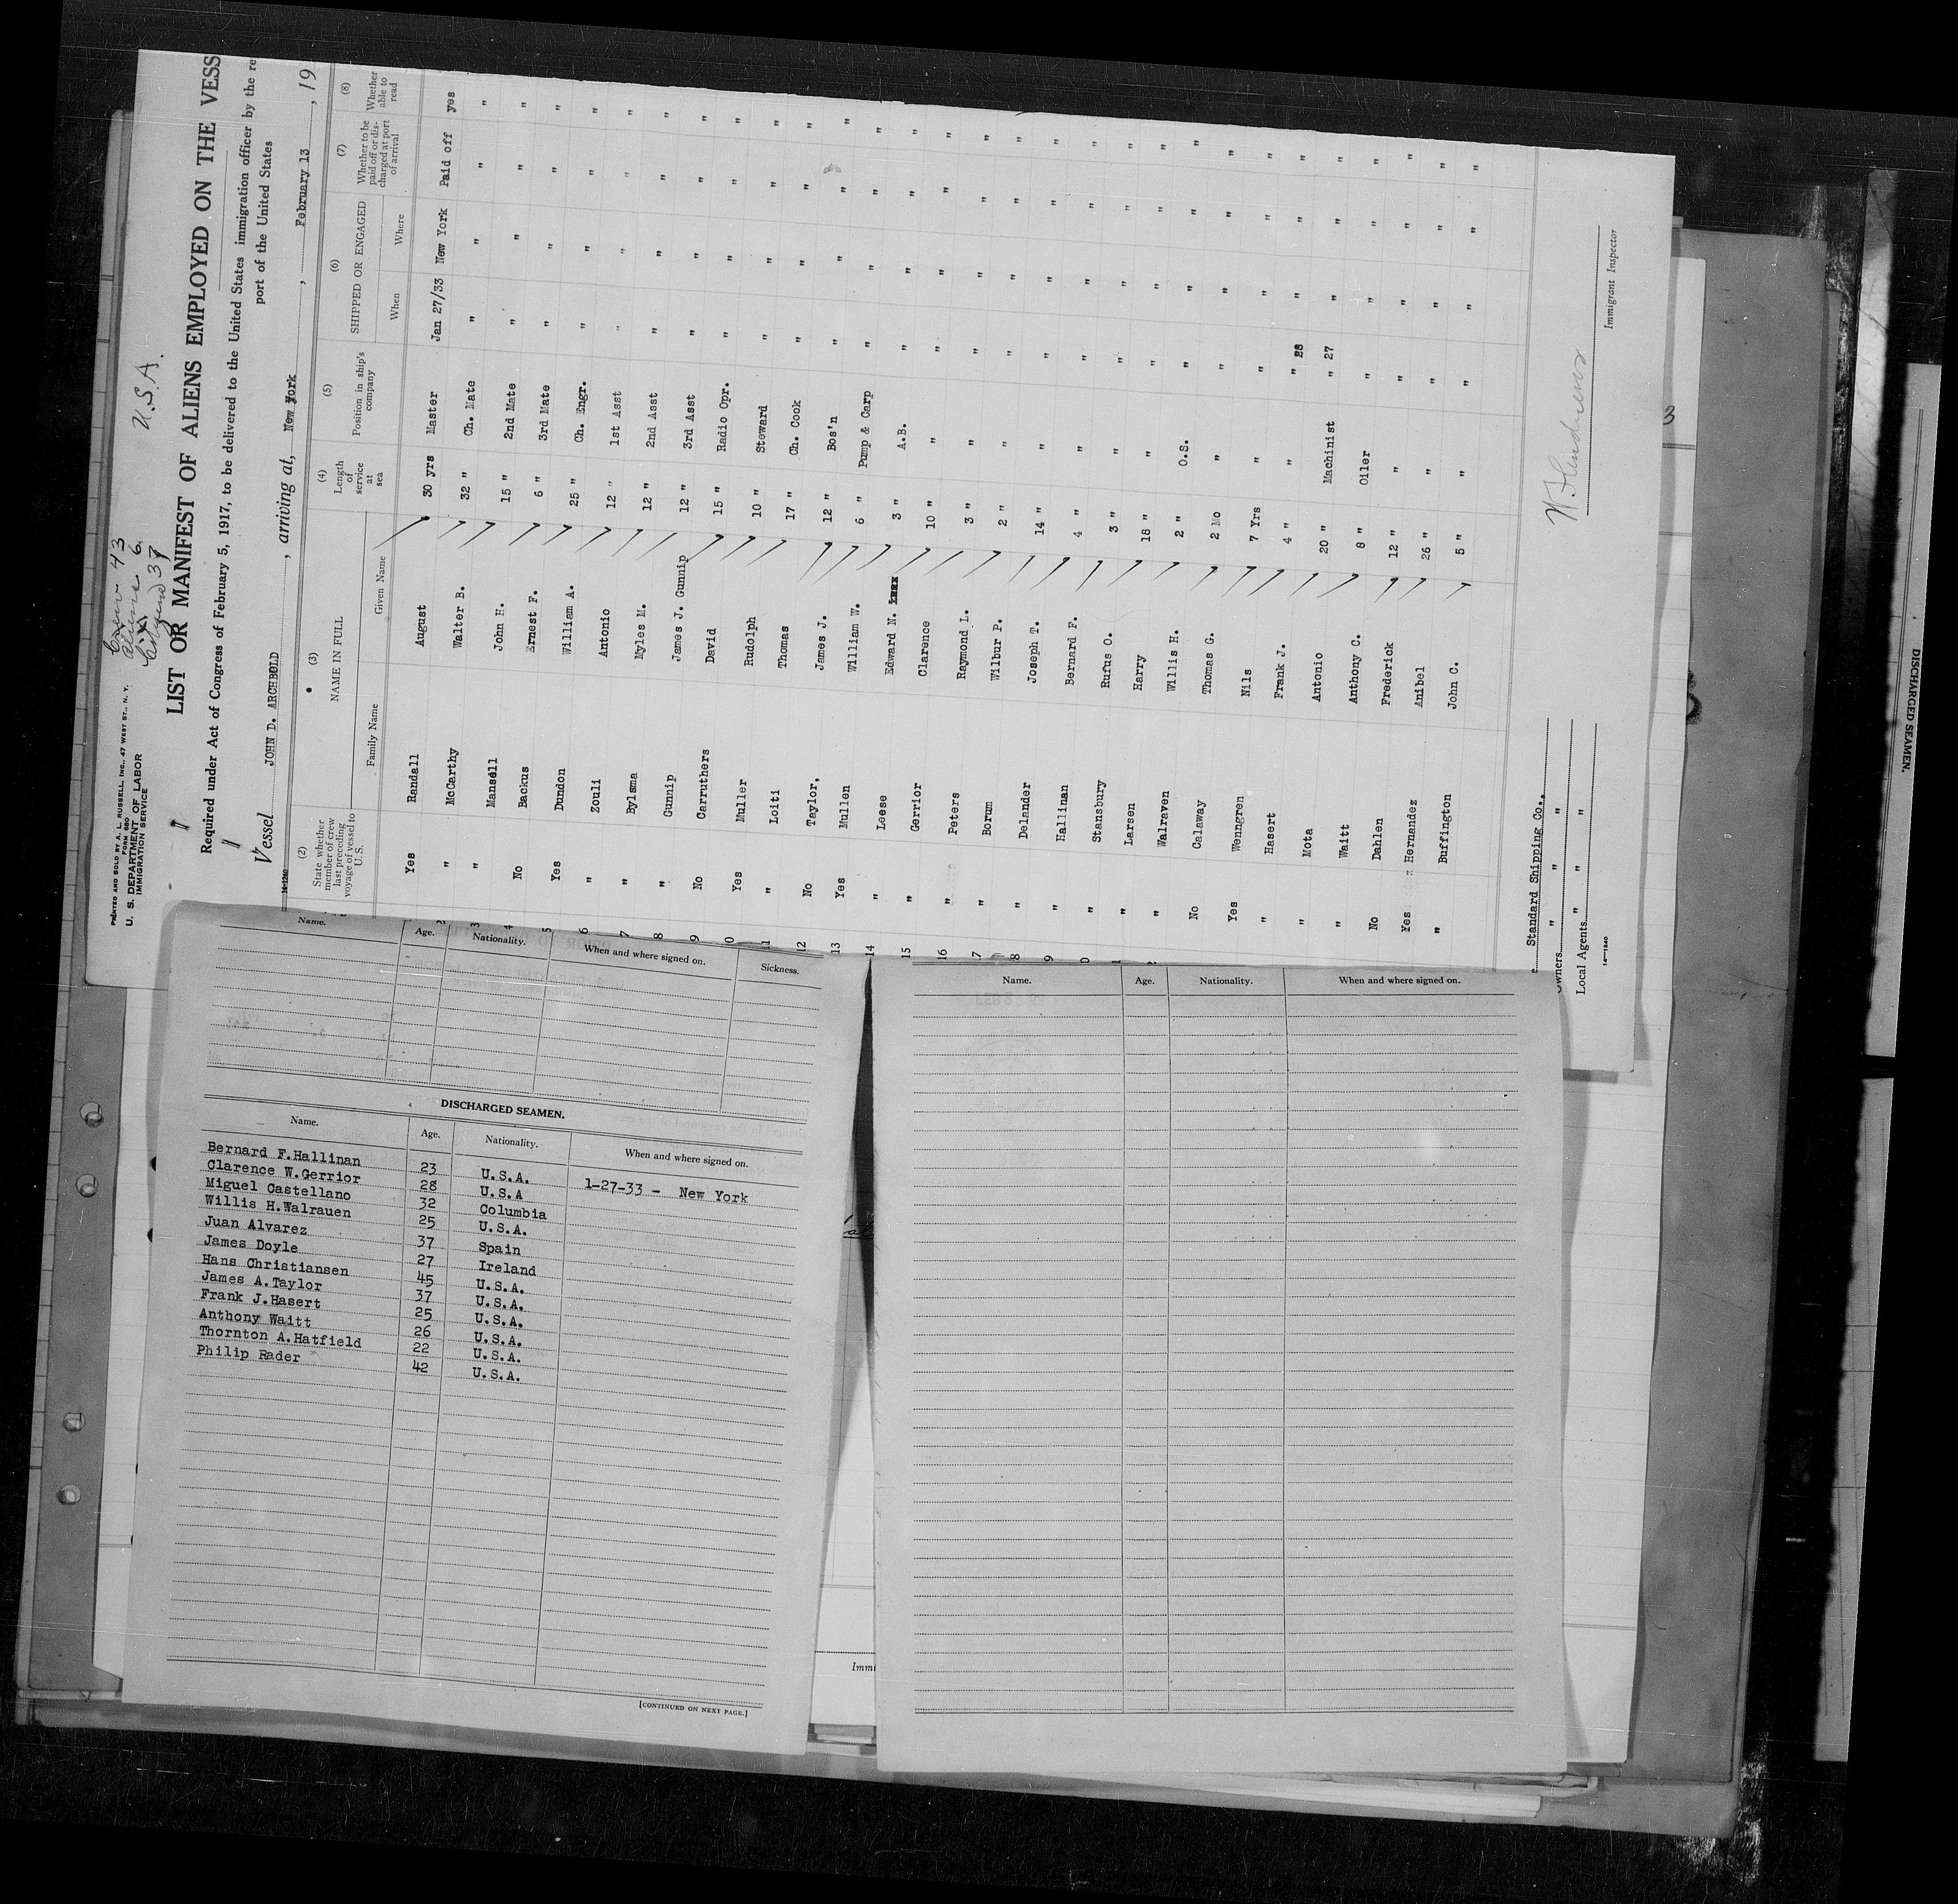 PRINTED AND SOLD BY A. L. RUSSELL, INC., 47 WEST ST., N. Y.
FORM 680
U. S. DEPARTMENT OF LABOR
IMMIGRATION SERVICE
Crew 43
Aliens 6
Citizens 37
U.S.A.
LIST OR MANIFEST OF ALIENS EMPLOYED ON THE VESS
Required under Act of Congress of February 5, 1917, to be delivered to the United States immigration officer by the re
port of the United States
Vessel JOHN D. ARCHBOLD, arriving at, New York, February 13, 19
(2) State whether member of crew last preceding voyage of vessel to U.S.
(3) NAME IN FULL
Family Name Given Name
(4) Length of service at sea
(5) Position in ship's company
(6) SHIPPED OR ENGAGED
When Where
(7) Whether to be paid off or discharged at port of arrival
(8) Whether able to read
Yes Randall August 30 yrs Master Jan 27/33 New York Paid off yes
2 " McCarthy Walter B. 32 " Ch. Mate " " " "
3 " Mansell John H. 15 " 2nd Mate " " " "
4 No Backus Ernest F. 6 " 3rd Mate " " " "
5 Yes Dundon William A. 25 " Ch. Engr. " " " "
6 " Zouli Antonio 12 " 1st Asst " " " "
7 " Bylsma Myles M. 12 " 2nd Asst " " " "
8 " Gunnip James J. Gunnip 12 " 3rd Asst " " " "
9 No Carruthers David 15 " Radio Opr. " " " "
0 Yes Muller Rudolph 10 " Steward " " " "
11 " Loiti Thomas 17 " Ch. Cook " " " "
12 No Taylor, James J. 12 " Bos'n " " " "
13 Yes Mullen William W. 6 " Pump & Carp " " " "
14 " Leese Edward N. 3 " A.B. " " " "
15 " Gerrior Clarence 10 " " " " " "
16 " Peters Raymond L. 3 " " " " " "
17 " Borum Wilbur P. 2 " " " " " "
8 " Delander Joseph T. 14 " " " " " "
9 " Hallinan Bernard F. 4 " " " " " "
0 " Stansbury Rufus O. 3 " " " " " "
1 " Larsen Harry 18 " " " " " "
2 " Walraven Willis H. 2 " O.S. " " " "
No Calaway Thomas G. 2 Mo " " " " "
Yes Wenngren Nils 7 Yrs " " " " "
" Hasert Frank J. 4 " " " 28 " " "
" Mota Antonio 20 " Machinist " 27 " " "
" Waitt Anthony C. 8 " Oiler " " " "
No Dahlen Frederick 12 " " " " " "
Yes Hernandez Anibel 26 " " " " " "
" Buffington John C. 5 " " " " " "
Standard Shipping Co.,
Owners " " "
Local Agents " " "
14—1240
Immigrant Inspector
Name. Age. Nationality. When and where signed on. Sickness.
DISCHARGED SEAMEN.
Name. Age. Nationality. When and where signed on.
Bernard F.Hallinan 23 U.S.A. 1-27-33 - New York
Clarence W.Gerrior 28 U.S.A
Miguel Castellano 32 Columbia
Willis H.Walrauen 25 U.S.A.
Juan Alvarez 37 Spain
James Doyle 27 Ireland
Hans Christiansen 45 U.S.A.
James A.Taylor 37 U.S.A.
Frank J.Hasert 25 U.S.A.
Anthony Waitt 26 U.S.A.
Thornton A.Hatfield 22 U.S.A.
Philip Rader 42 U.S.A.
[CONTINUED ON NEXT PAGE.]
Immi
Name. Age. Nationality. When and where signed on.
3
DISCHARGED SEAMEN.